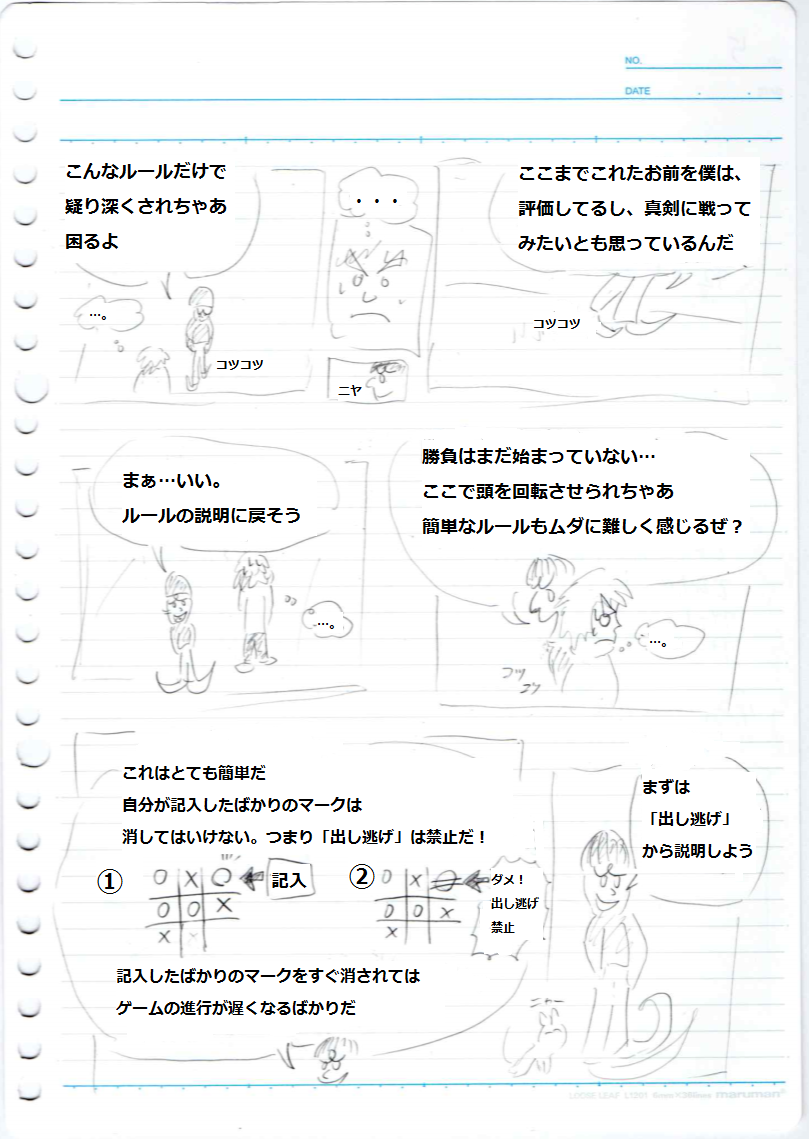 NO.
DATE
ここまでこれたお前を僕は、
評価してるし、真剣に戦って
みたいとも思っているんだ
コツコツ
・・・
ニヤ
こんなルールだけで
疑り深くされちゃあ
困るよ
…。
コツコツ
勝負はまだ始まっていない…
ここで頭を回転させられちゃあ
簡単なルールもムダに難しく感じるぜ？
…。
コツ
コツ
まぁ…いい。
ルールの説明に戻そう
…。
まずは
「出し逃げ」
から説明しよう
ニャー
これはとても簡単だ
自分が記入したばかりのマークは
消してはいけない。つまり「出し逃げ」は禁止だ！
①
O X O
O O X
X
記入
②
O X O
O O X
X
ダメ！
出し逃げ
禁止
記入したばかりのマークをすぐ消されては
ゲームの進行が遅くなるばかりだ
LOOSE LEAF L1201 6mm×36lines maruman